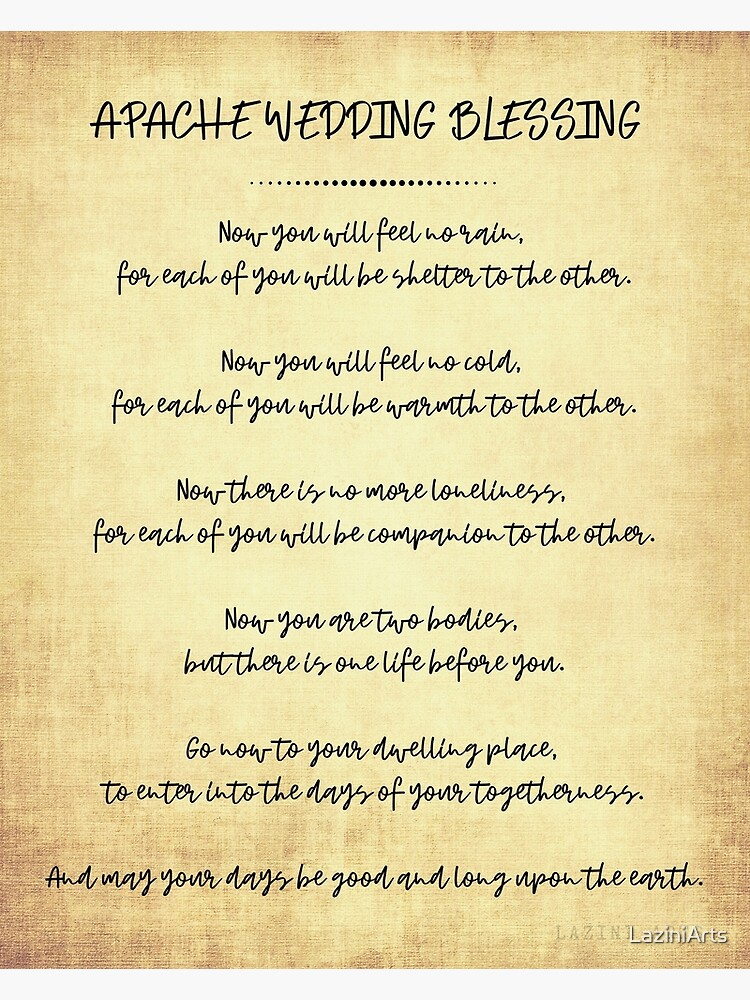 APACHE WEDDING BLESSING
Now you will feel no rain,
for each of you will be shelter to the other.
Now you will feel no cold,
for each of you will be warmth to the other.
Now there is no more loneliness,
for each of you will be companion to the other.
Now you are two bodies,
but there is one life before you.
Go now to your dwelling place,
to enter into the days of your togetherness.
And may your days be good and long upon the earth.
LAZINI
LaziniArts